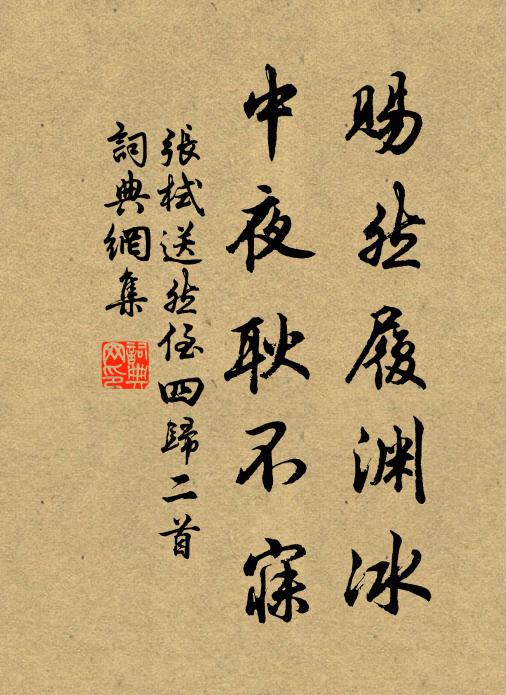 賜然履渊冰
中夜耿不寐
張栻送然侄四歸二首
詞典網集
詞典
网印